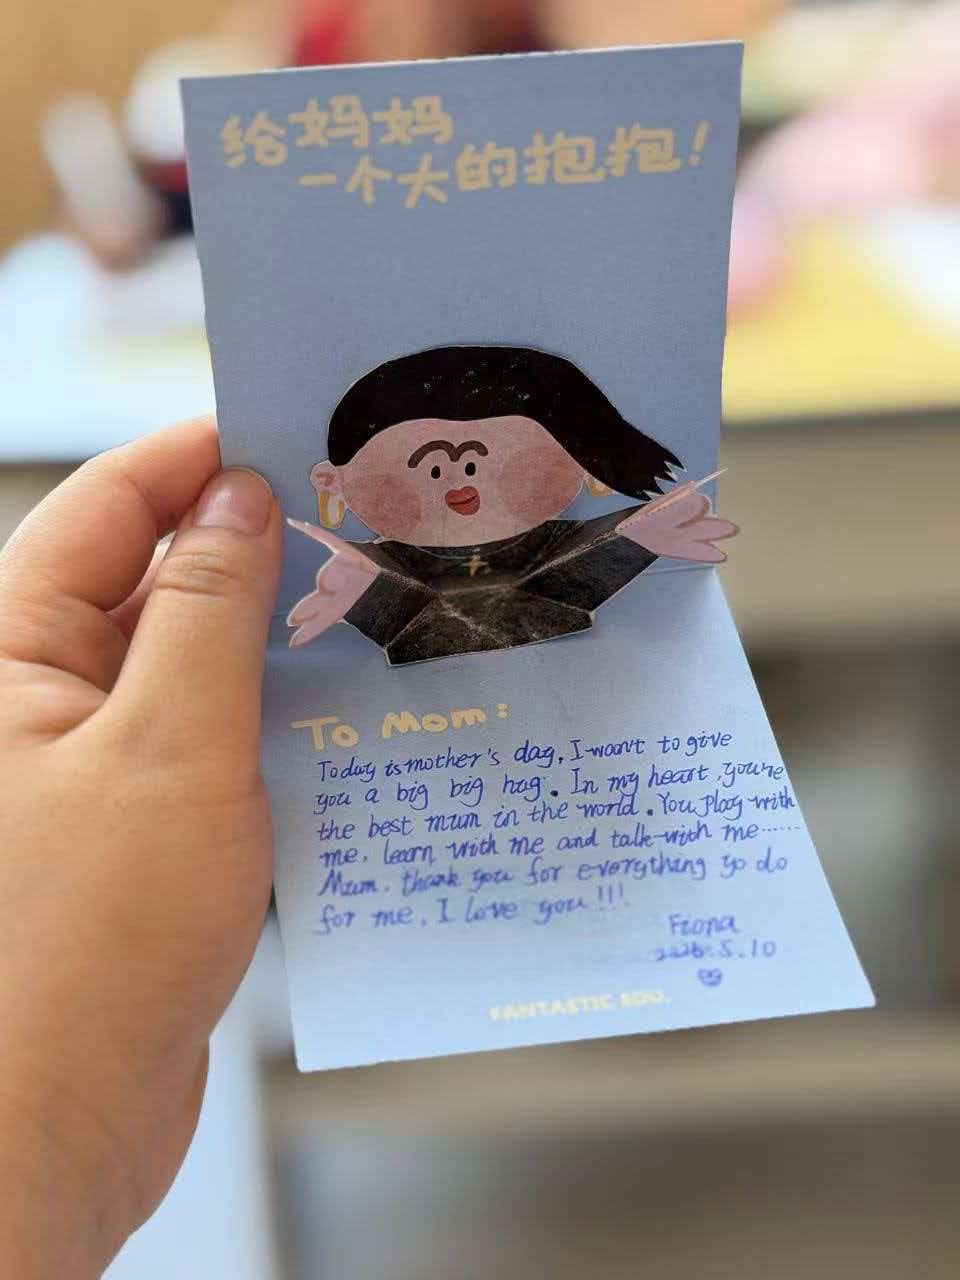 给妈妈
一个大的抱抱!
To Mom:
Today is mother's day, I want to give
you a big big hug. In my heart, you're
the best mum in the world. You play with
me, learn with me and talk with me......
Mum, thank you for everything yo do
for me, I love you!!!
Fiona
5.10
FANTASTIC EDU.